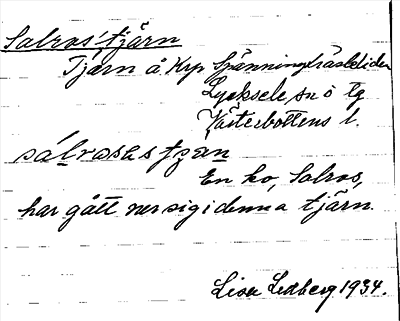 Solros'tjärn
Tjärn å Krp Spänningträskliden
Lycksele sn o tg
Västerbottens l.
sólrosastjzen
En ko, Solros,
har gått ner sig i denna tjärn.
Lisa Lidberg 1934.